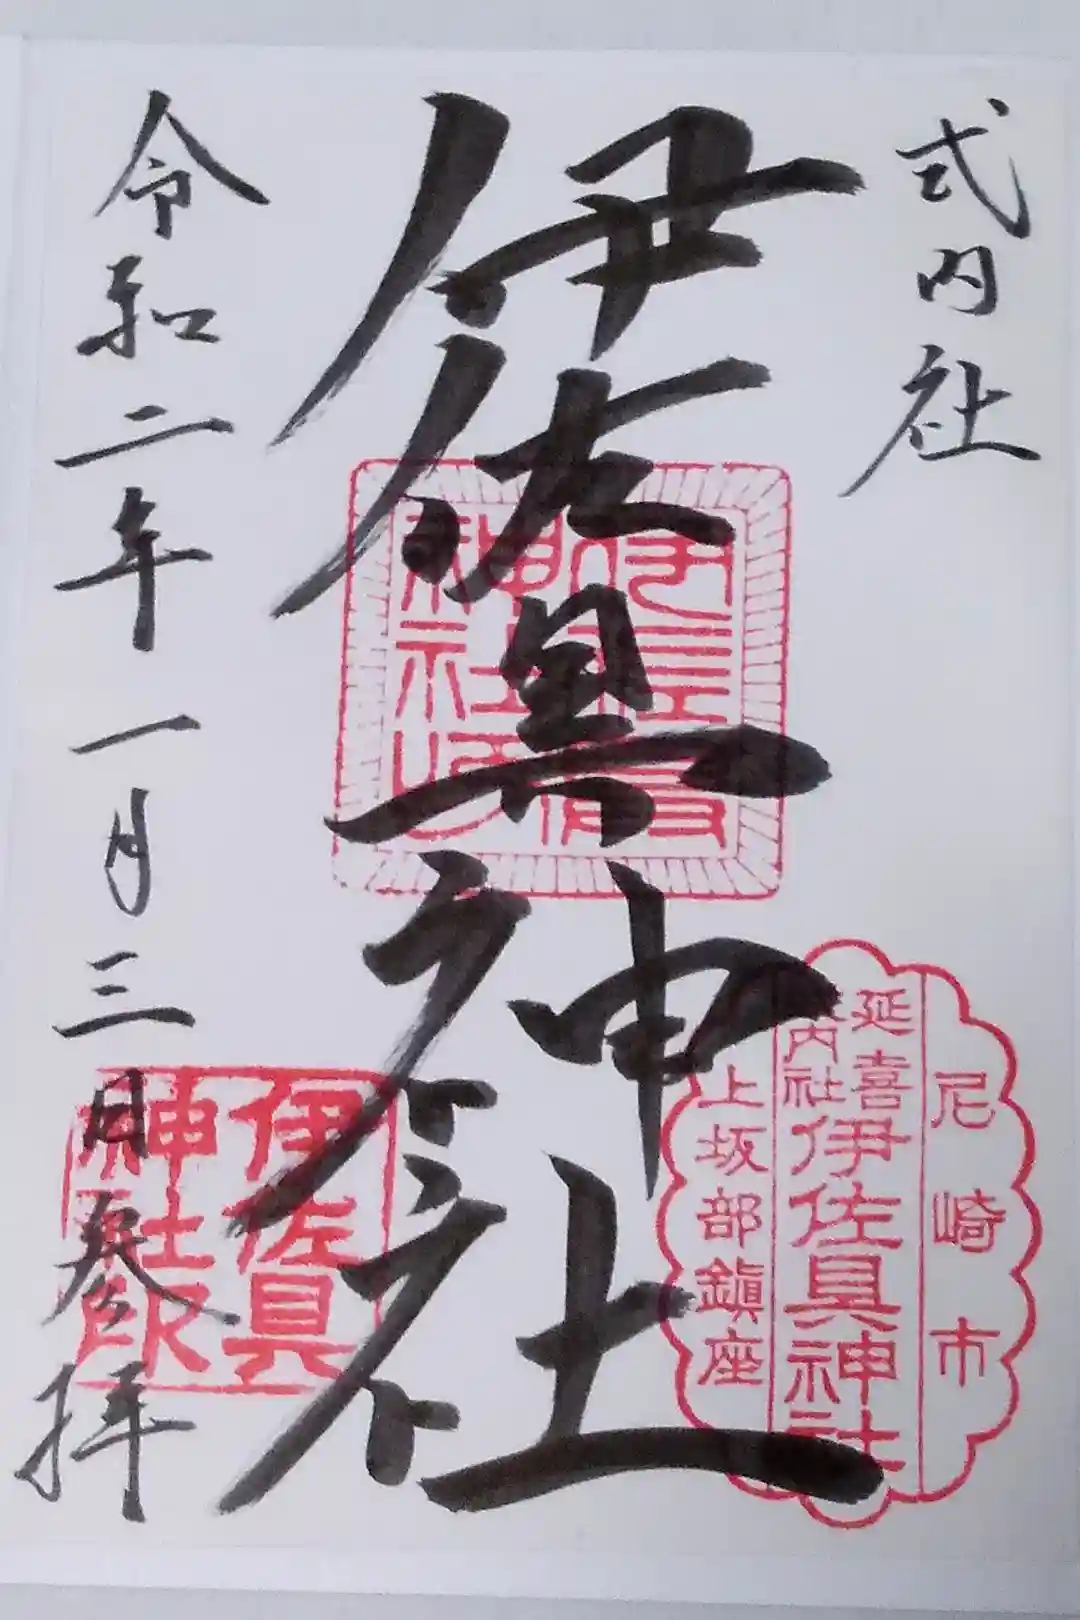 式内社
伊佐具神社
令和二年一月三日参拝
尼崎市
延喜
式内社
伊佐具神社
上坂部鎮座
伊佐具
神社印